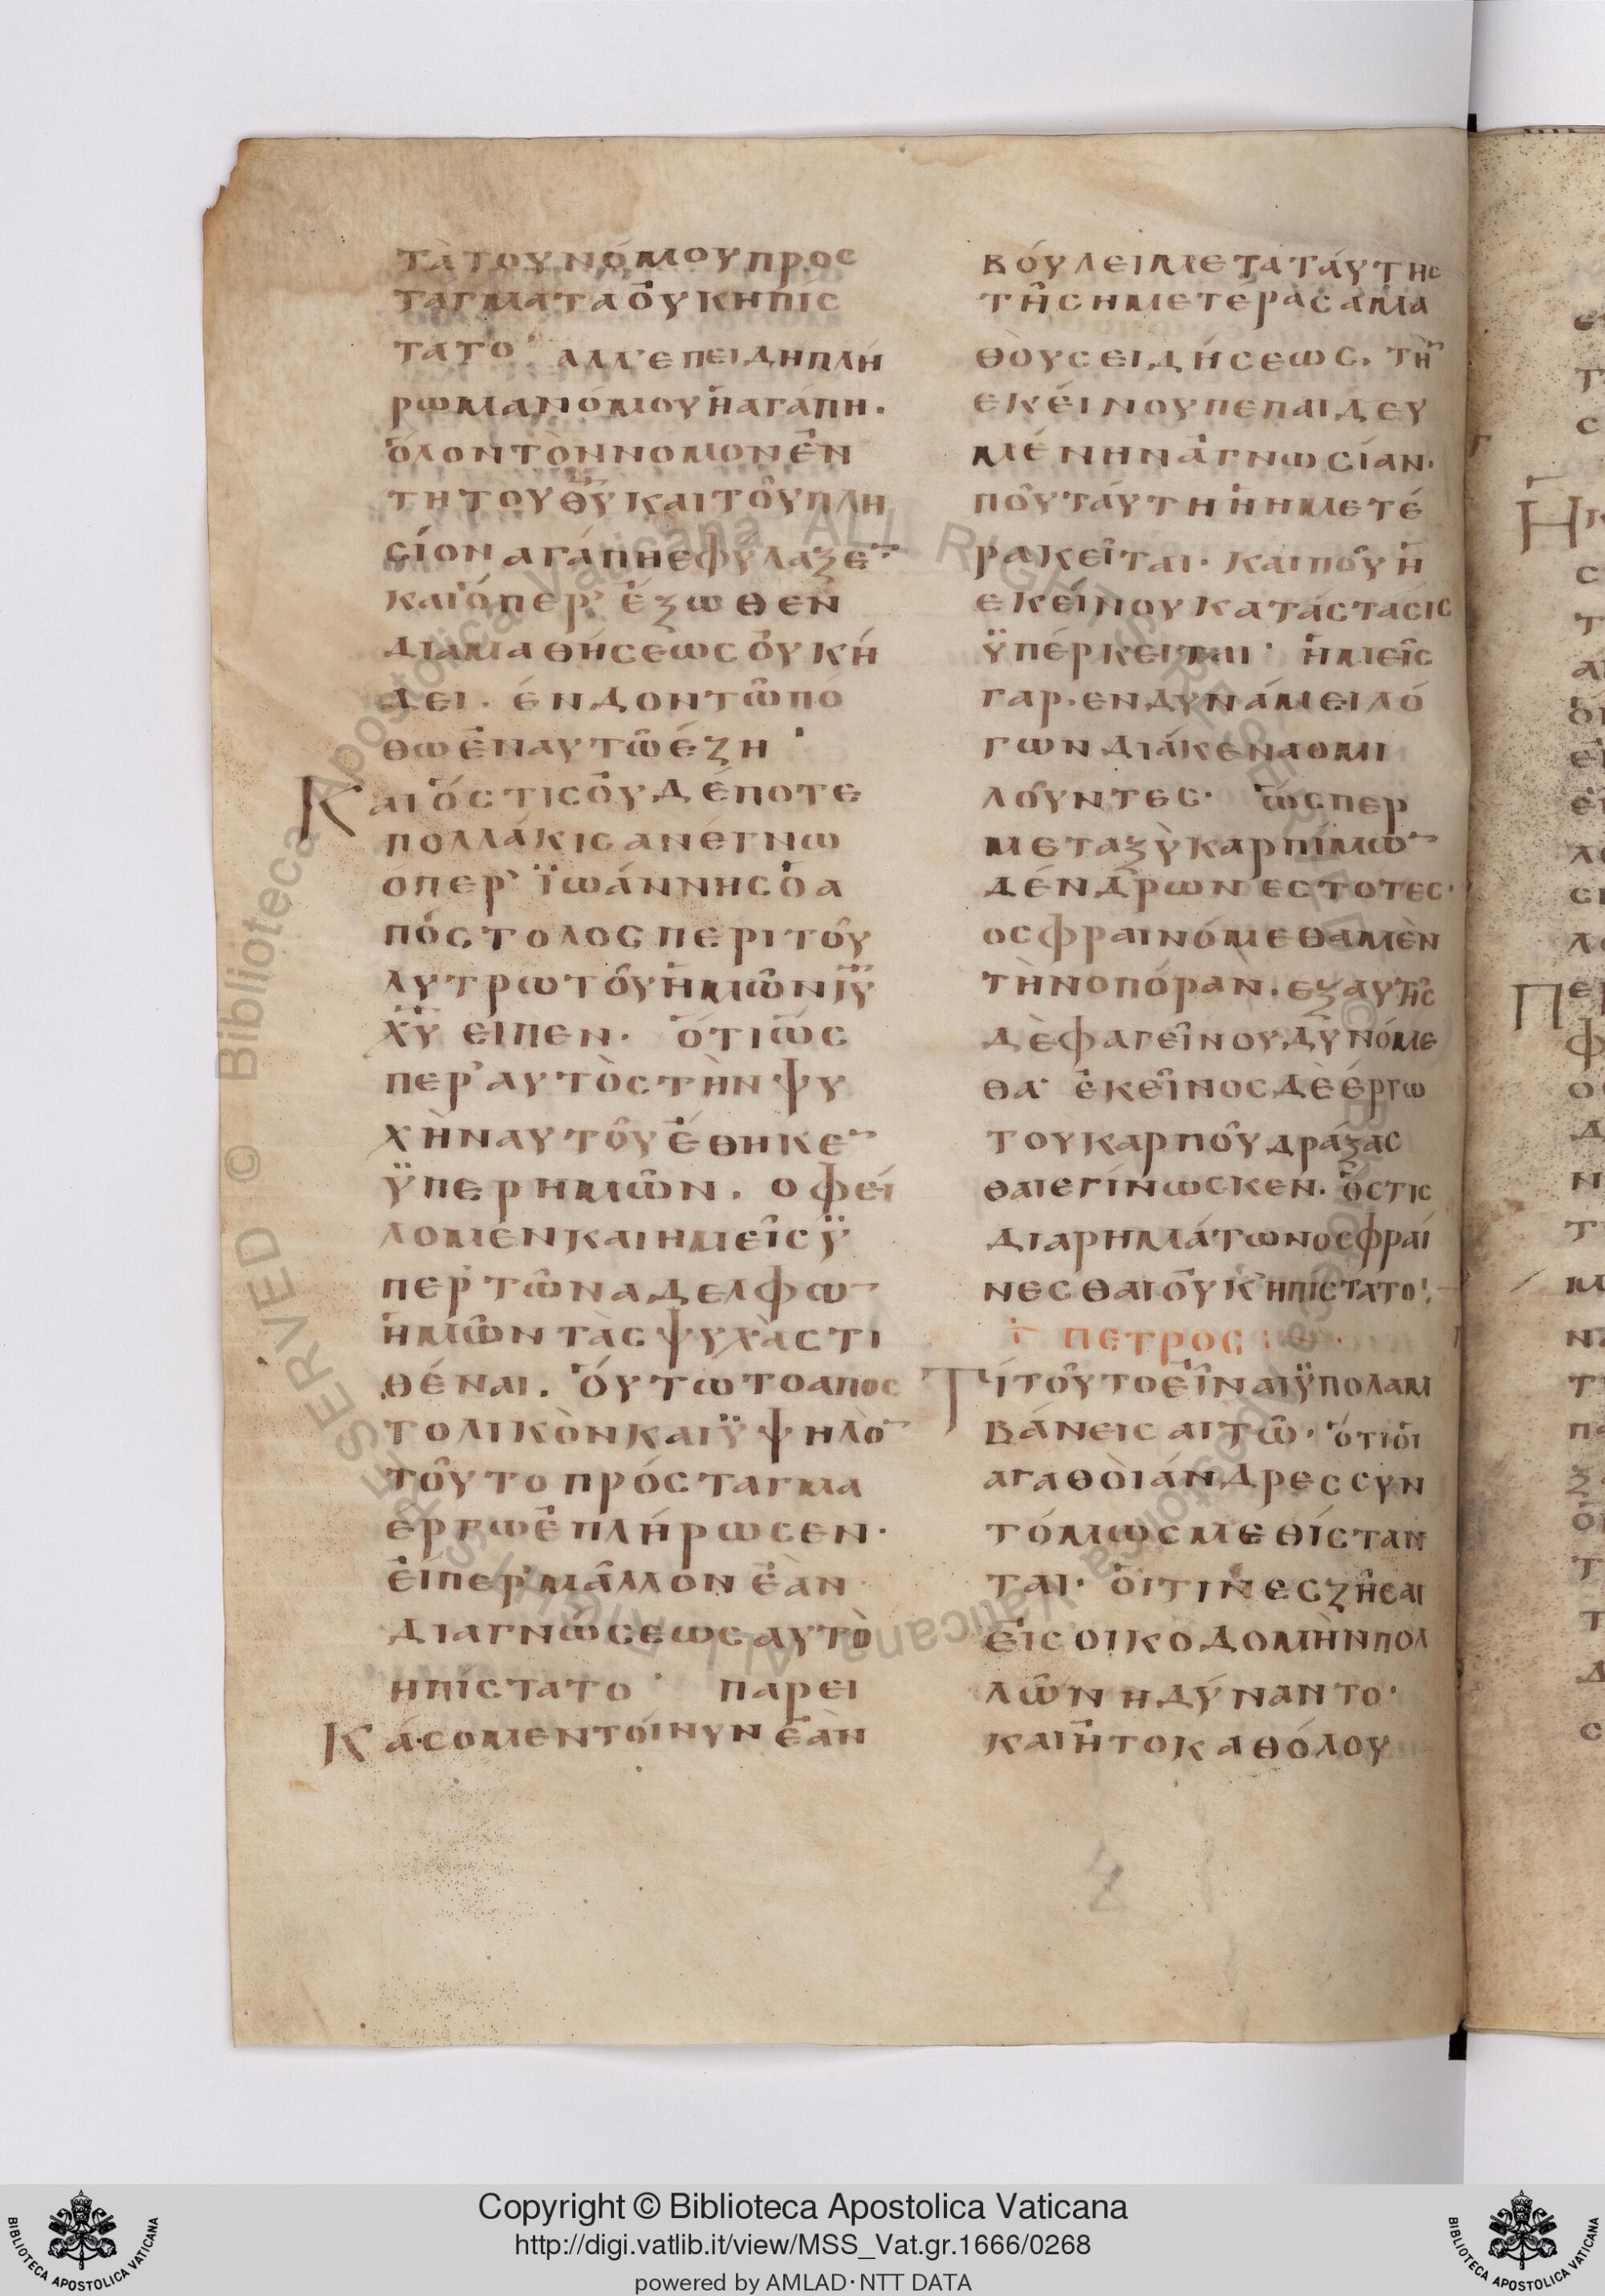 τὰ τοῦ νόμου προσ
τάγματα οὐκ ηπίσ
τατο· αλλ' επειδὴ πλή
ρωμα νόμου ἡ αγάπη.
ὅλον τὸν νομον ἐν
τῇ του θῦ και τοῦ πλη
σίον αγάπη εφύλαξε̄
καὶ ὅπερ' ἔξωθεν
διαμαθήσεως οὐκ ή
δει. ένδον τῶ πό
θω ἐν αυτῶ έζη·
Και ὅστις οὐδέποτε
πολλάκις ανέγνω
οπερ' ϊωάννης ὁ α
πόστολος περι τοῦ
λυτρωτοῦ ἡμῶν ϊῡ
χῡ ειπεν. ὅτι ὥσ
περ' αυτὸς τὴν ψυ
χὴν αυτοῦ ἔθηκε̄
ϋπερ ημῶν. οφεί
λομεν και ημεῖς ϋ
περ τῶν αδελφω̄
ἡμῶν τὰς ψυχὰς τι
θέναι. Ὅυτω το αποσ
τολικὸν και ϋψηλο̄
τοῦτο πρόσταγμα
εργω ἐπλήρωσεν.
ἐίπερ' μᾶλλον ἐὰν
διαγνώσεως αυτὸ
ηπίστατο· παρει
Κάσομεν τοίνυν ἐὰν
βούλει μετα ταύτης
τῆς ημετέρας αμα
θοὺς ειδήσεως. τὴ̄
εκείνου πεπαιδευ
μένην ἀγνωσίαν.
ποῦ ταύτη ἡ ημετέ
ρα κεῖται. και ποῦ ἡ
εκείνου κατάστασις
ϋπέρκειται· ἡμεῖς
γαρ. εν δυνάμει λό
γων διάκενα ομι
λοῦντες· ὥσπερ
μεταξὺ καρπίμω̄
δένδρων εστοτες·
οσφραινόμεθα μὲν
τὴν οπόραν. εξ αυτῆς
δὲ φαγεῖν ου δυνόμε
θα· ἐκεῖνος δὲ έργω
του καρποῦ δράξασ
θαι εγίνωσκεν. ὅστις
δια ρημάτων οσφραί
νεσθαι οὐκ ηπίστατο·
ΠΕΤΡΟΣ
Τί τοῦτο εἶναι ϋπολαμ
βάνεις αιτῶ· ὅτι ὁι
αγαθοὶ άνδρες συν
τόμως μεθίσταν
ται· ὅιτινες ζῆσαι
εἰς οικοδομὴν πολ
λῶν ηδύναντο·
και ἢ το καθόλου
Copyright © Biblioteca Apostolica Vaticana
http://digi.vatlib.it/view/MSS_Vat.gr.1666/0268
powered by AMLAD·NTT DATA